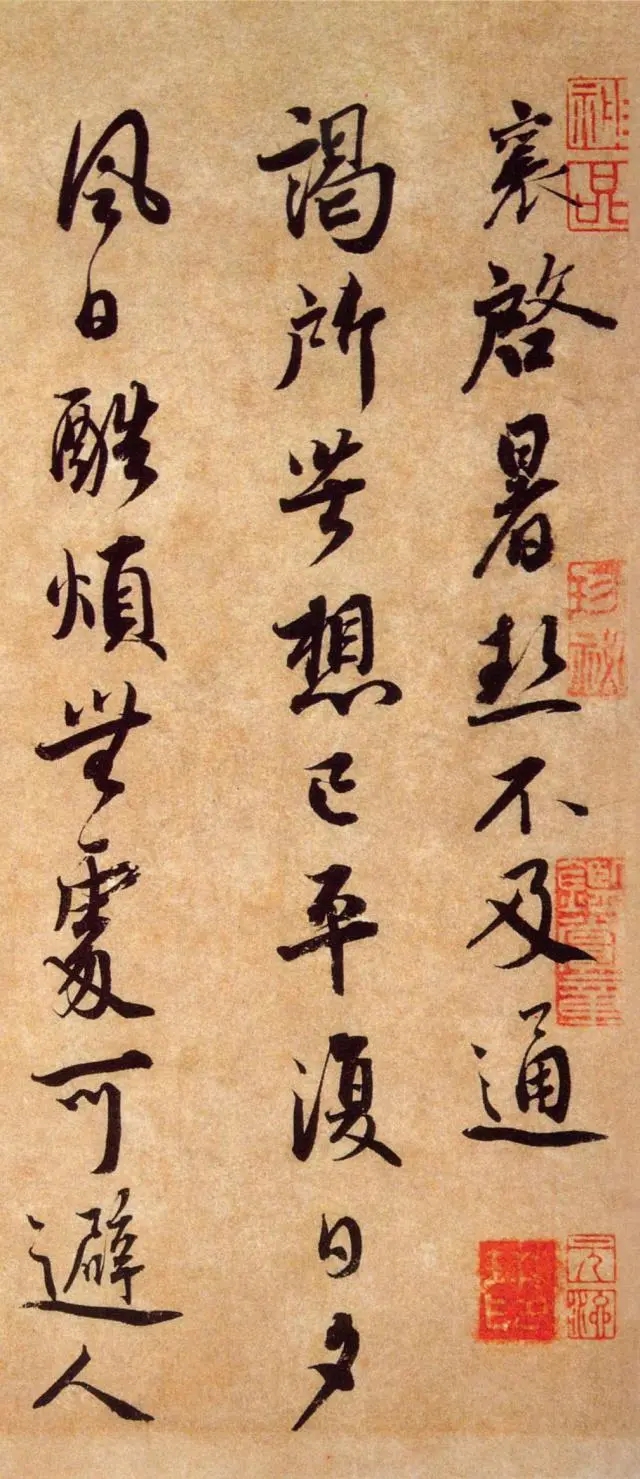 襄啓暑熱不及通
謁所苦想已平復日夕
風日酷煩無處可避人
神品
珍祕